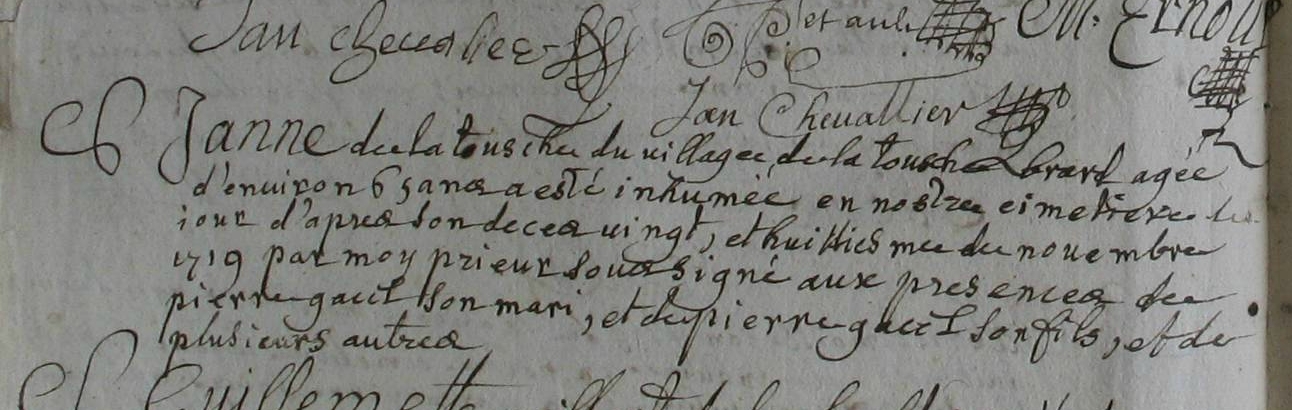 Jan checcalier P et aulx M. Ernoul
Jan Chevallier
S Janne de la tousche du village de la tousche brard agée
d'environ 65 ans a esté inhumée en nostre cimetiere le
iour d'apres son deces vingt, et huittiesme de novembre
1719 par moy prieur soussigné aux presences de
pierre gacel son mari, et de pierre gacel son fils, et de
plusieurs autres
S Guillemette